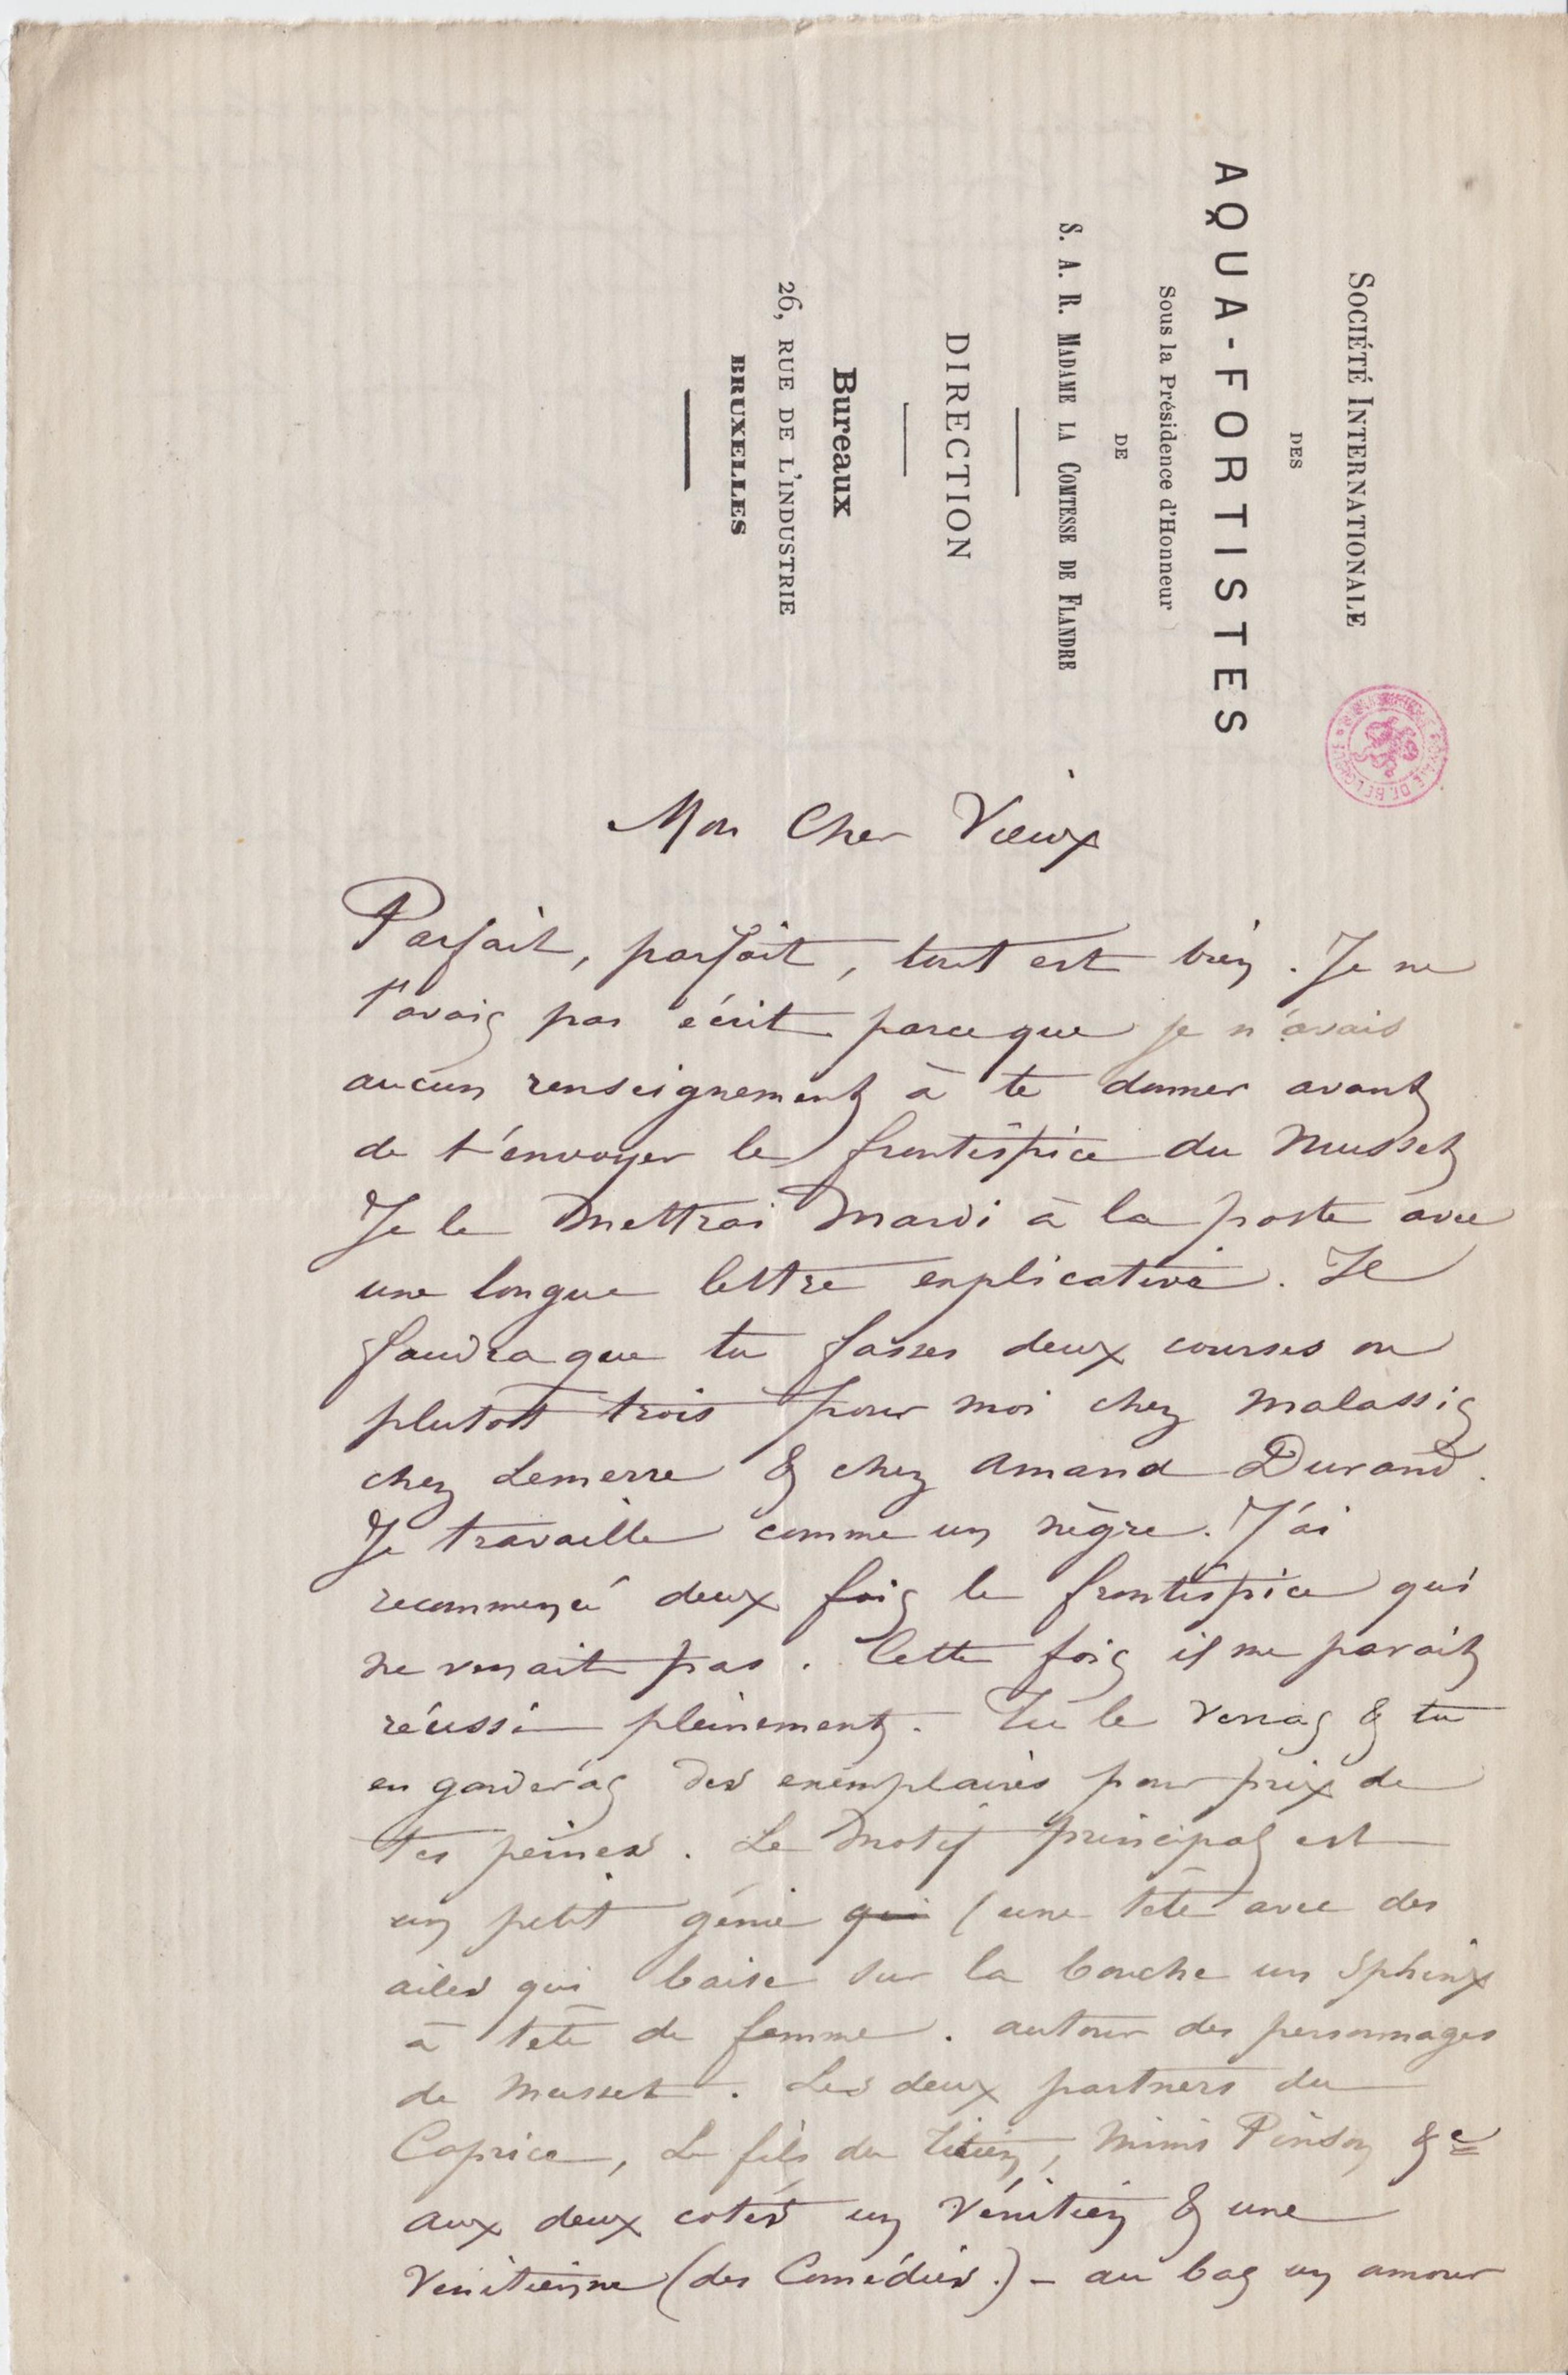 SOCIÉTÉ INTERNATIONALE
DES
AQUA-FORTISTES
Sous la Présidence d'Honneur
DE
S. A. R. MADAME LA COMTESSE DE FLANDRE
DIRECTION
Bureaux
26, RUE DE L'INDUSTRIE
BRUXELLES
Mon Cher Vieux
Parfait, parfait, tout est bien. Je ne
t'avais pas écrit parceque je n'avais
aucun renseignement à te donner avant
de t'envoyer le frontispice du Musset
Je le mettrai Mardi à la poste avec
une longue lettre explicative. Il
faudra que tu fasses deux courses ou
plutott trois pour moi chez Malassis
chez Lemerre & chez Amand Durand.
Je travaille comme un nègre. J'ai
recommencé deux fois le frontispice qui
ne venait pas. Cette fois il me parait
réussi pleinement. Tu le verras & tu
en garderas des exemplaires pour prix de
tes peines. Le Motif principal est
un petit génie qui (une tête avec des
ailes qui baise sur la bouche un sphinx
à tête de femme. autour des personnages
de Musset. Les deux partners du
Caprice, Le fils du Titien, Mimi Pinson &c
aux deux cotés un Vénitien & une
Vénitienne (des Comédies.) - au bas un amour